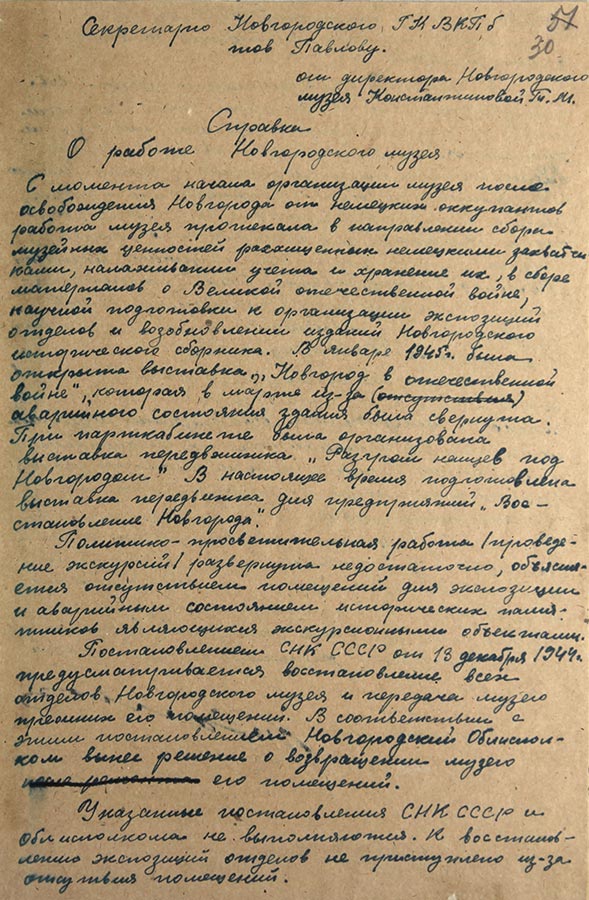 Секретарю Новгородского ГК ВКП б
тов Павлову.
51
30
от директора Новгородского
музея Константиновой Т. М.
Справка
О работе Новгородского музея
С момента начала организации музея после
освобождения Новгорода от немецких оккупантов
работа музея протекала в направлении сбора
музейных ценностей расхищенных немецкими захватчи
ками, налаживании учета и хранение их, в сборе
материалов о Великой отечественной войне,
научной подготовки к организации экспозиций
отделов и возобновлении изданий Новгородского
исторического сборника. В январе 1945г. была
открыта выставка „Новгород в отечественной
войне", которая в марте из-за (отсутствия)
аварийного состояния здания была свернута.
При парткабинете была организована
выставка передвижка „Разгром немцев под
Новгородом" В настоящее время подготовлена
выставка передвижка для предприятий „Вос-
становление Новгорода".
Политико-просветительная работа /проведе-
ние экскурсий/ развернута недостаточно, объясня-
ется отсутствием помещений для экспозиции
и аварийным состоянием исторических памя-
тников являющихся экскурсионными объектами.
Постановлением СНК СССР от 13 декабря 1944г.
предусматривается восстановление всех
отделов Новгородского музея и передача музею
прежних его помещений. В соответствии с
этим постановлением Новгородский Облиспол-
ком вынес решение о возвращении музею
после ремонта его помещений.
Указанные постановления СНК СССР и
облисполкома не выполняются. К восстанов-
лению экспозиций отделов не приступлено из-за
отсутвия помещений.